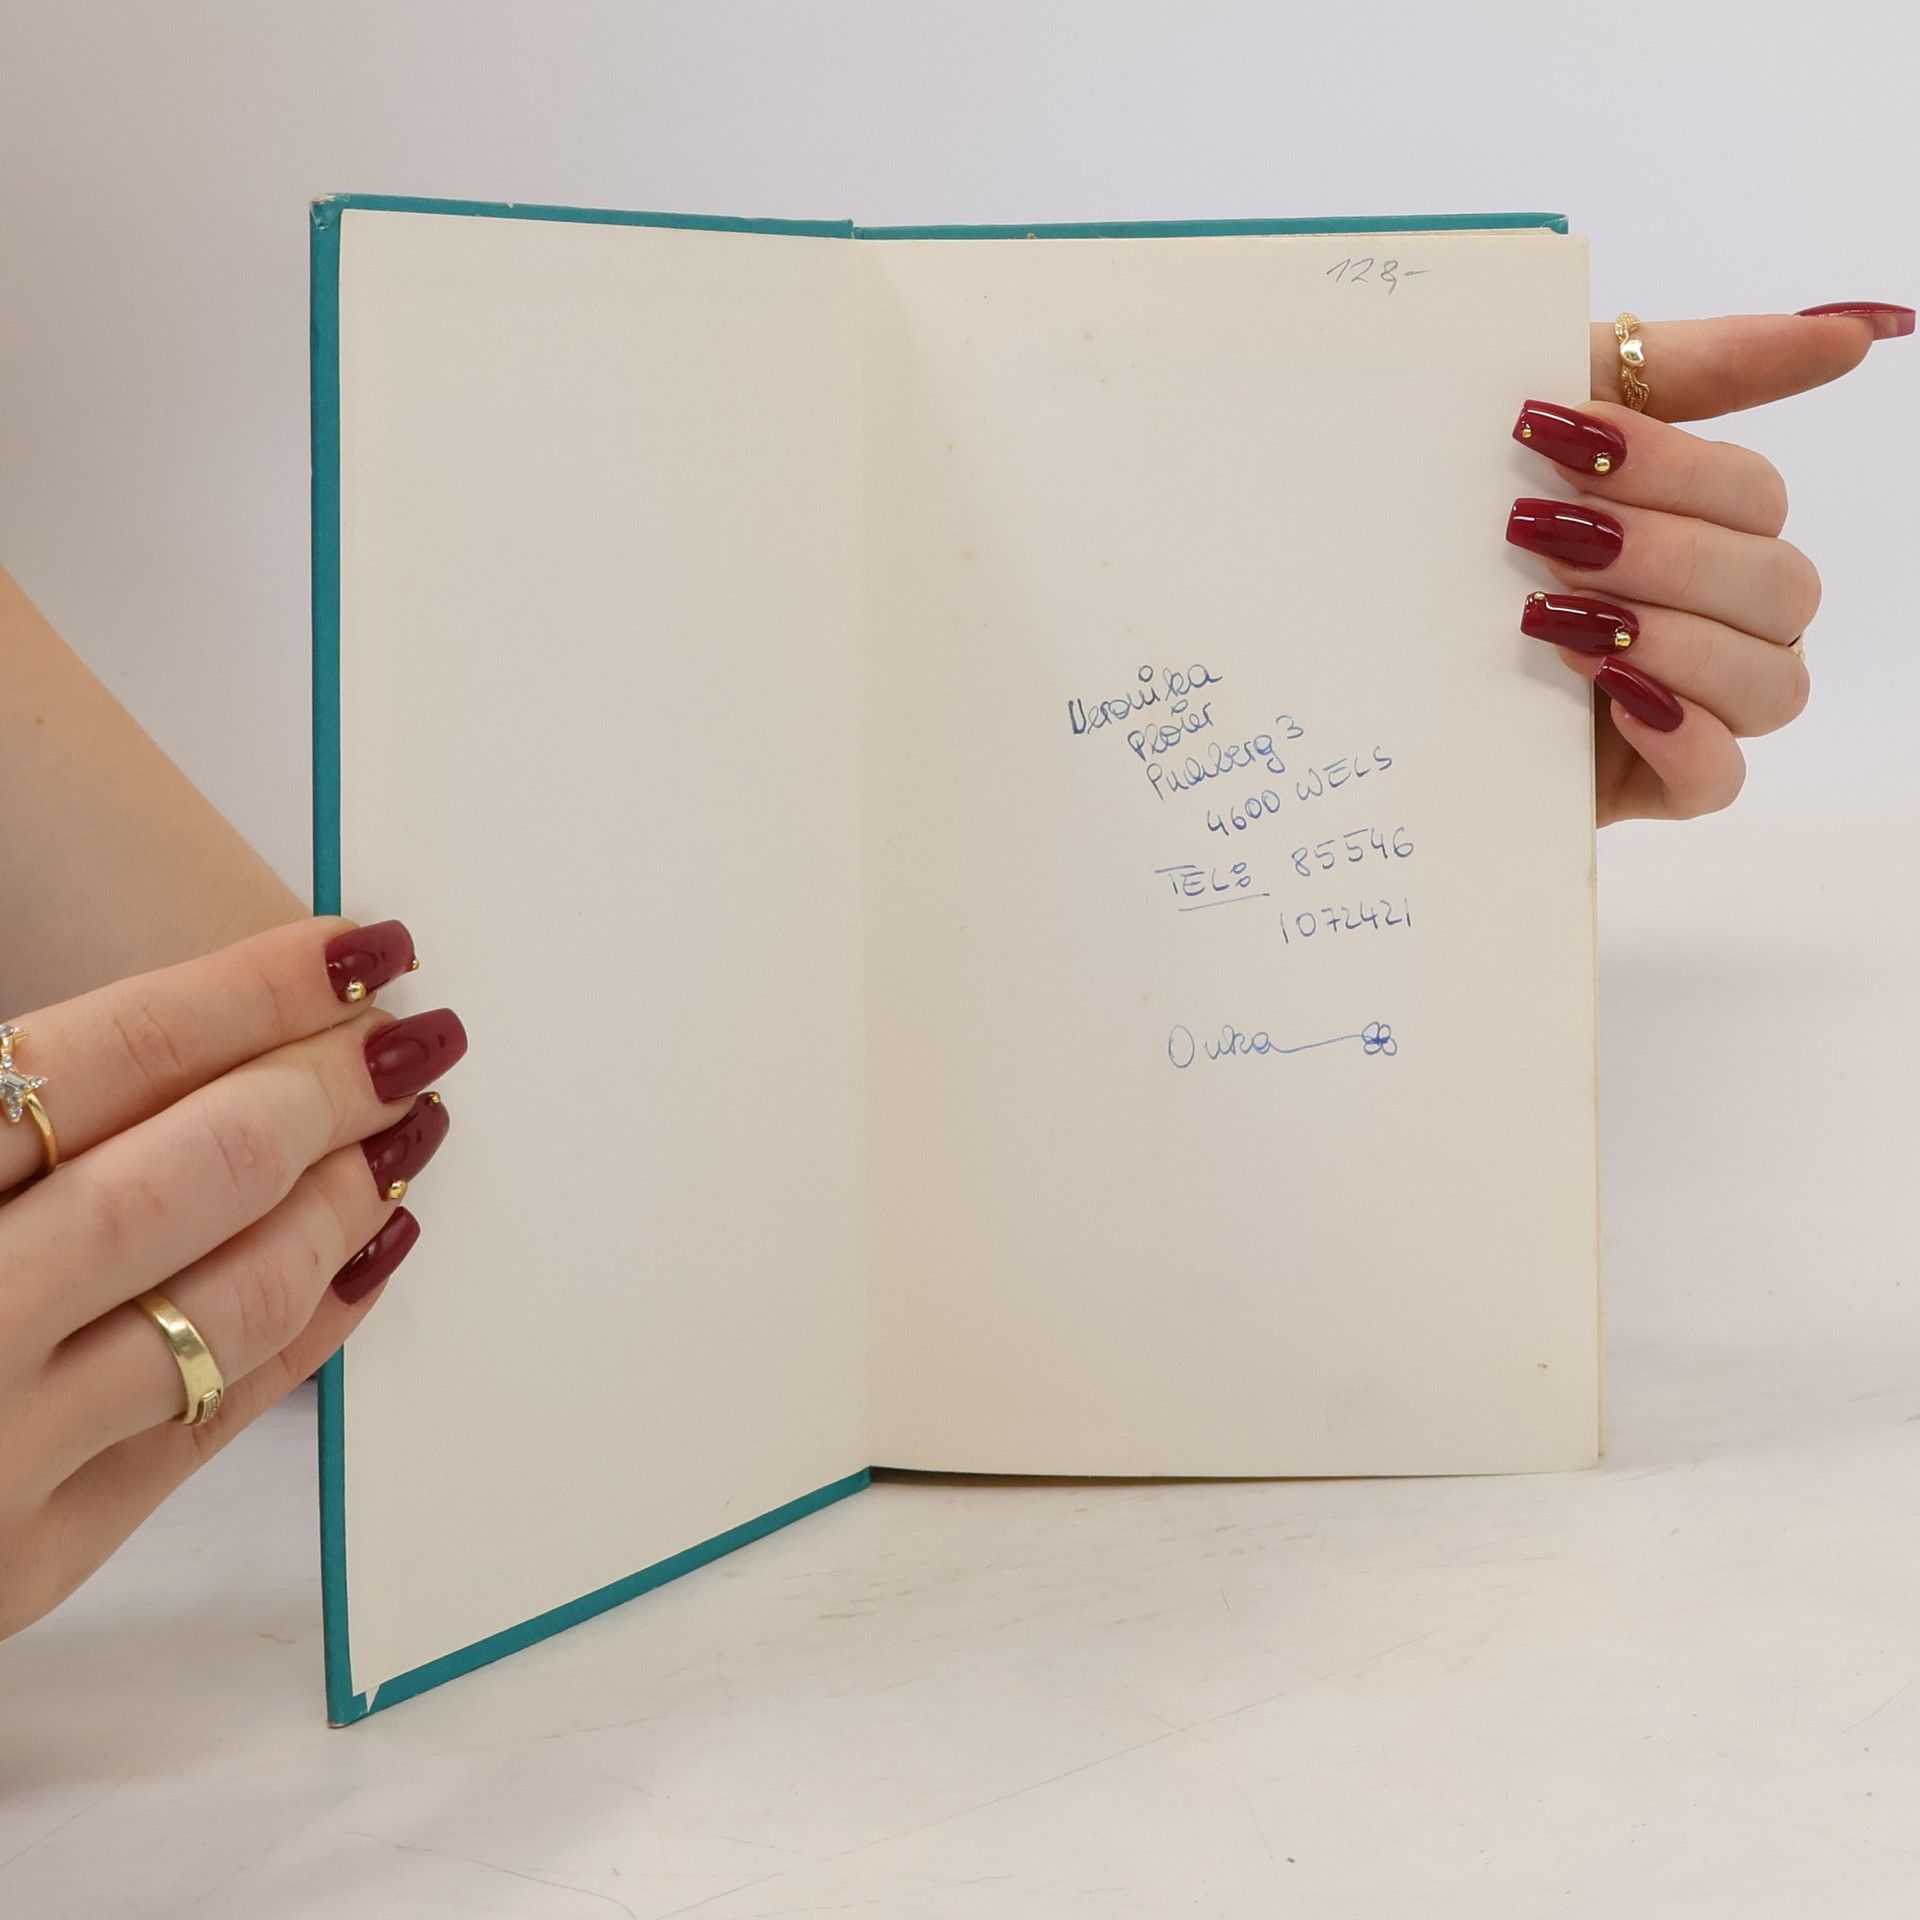 128,-
Veronika
Ploier
Puchberg 3
4600 WELS
TEL: 85546
1072421